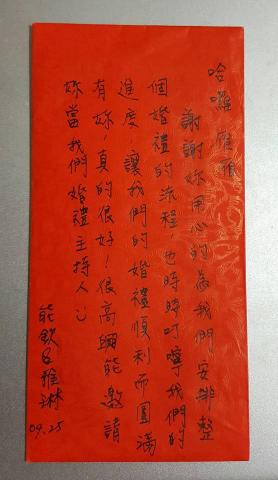 哈囉雁雁
謝謝妳用心的為我們安排整
個婚禮的流程 也時時叮嚀我們的
進度 讓我們的婚禮順利而圓滿
有妳！真的很好！很高興能邀請
妳當我們婚禮主持人
能欽&雅琳
09.25